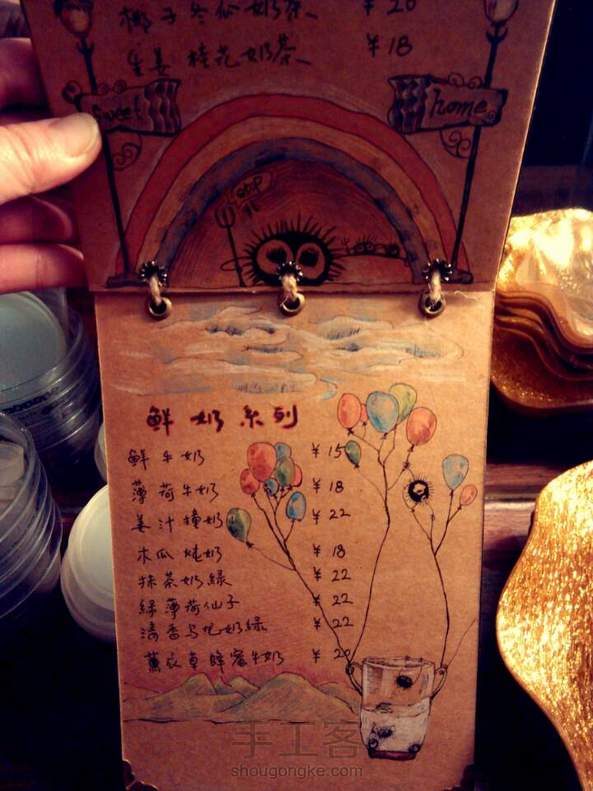 椰子冬瓜奶茶 ¥20
生姜桂花奶茶 ¥18
Sweet home
stop
鮮奶系列
鮮牛奶 ¥15
薄荷牛奶 ¥18
姜汁撞奶 ¥22
木瓜炖奶 ¥18
抹茶奶綠 ¥22
綠薄荷仙子 ¥22
清香乌龙奶綠 ¥22
薰衣草蜂蜜牛奶 ¥20
手工客
shougongke.com